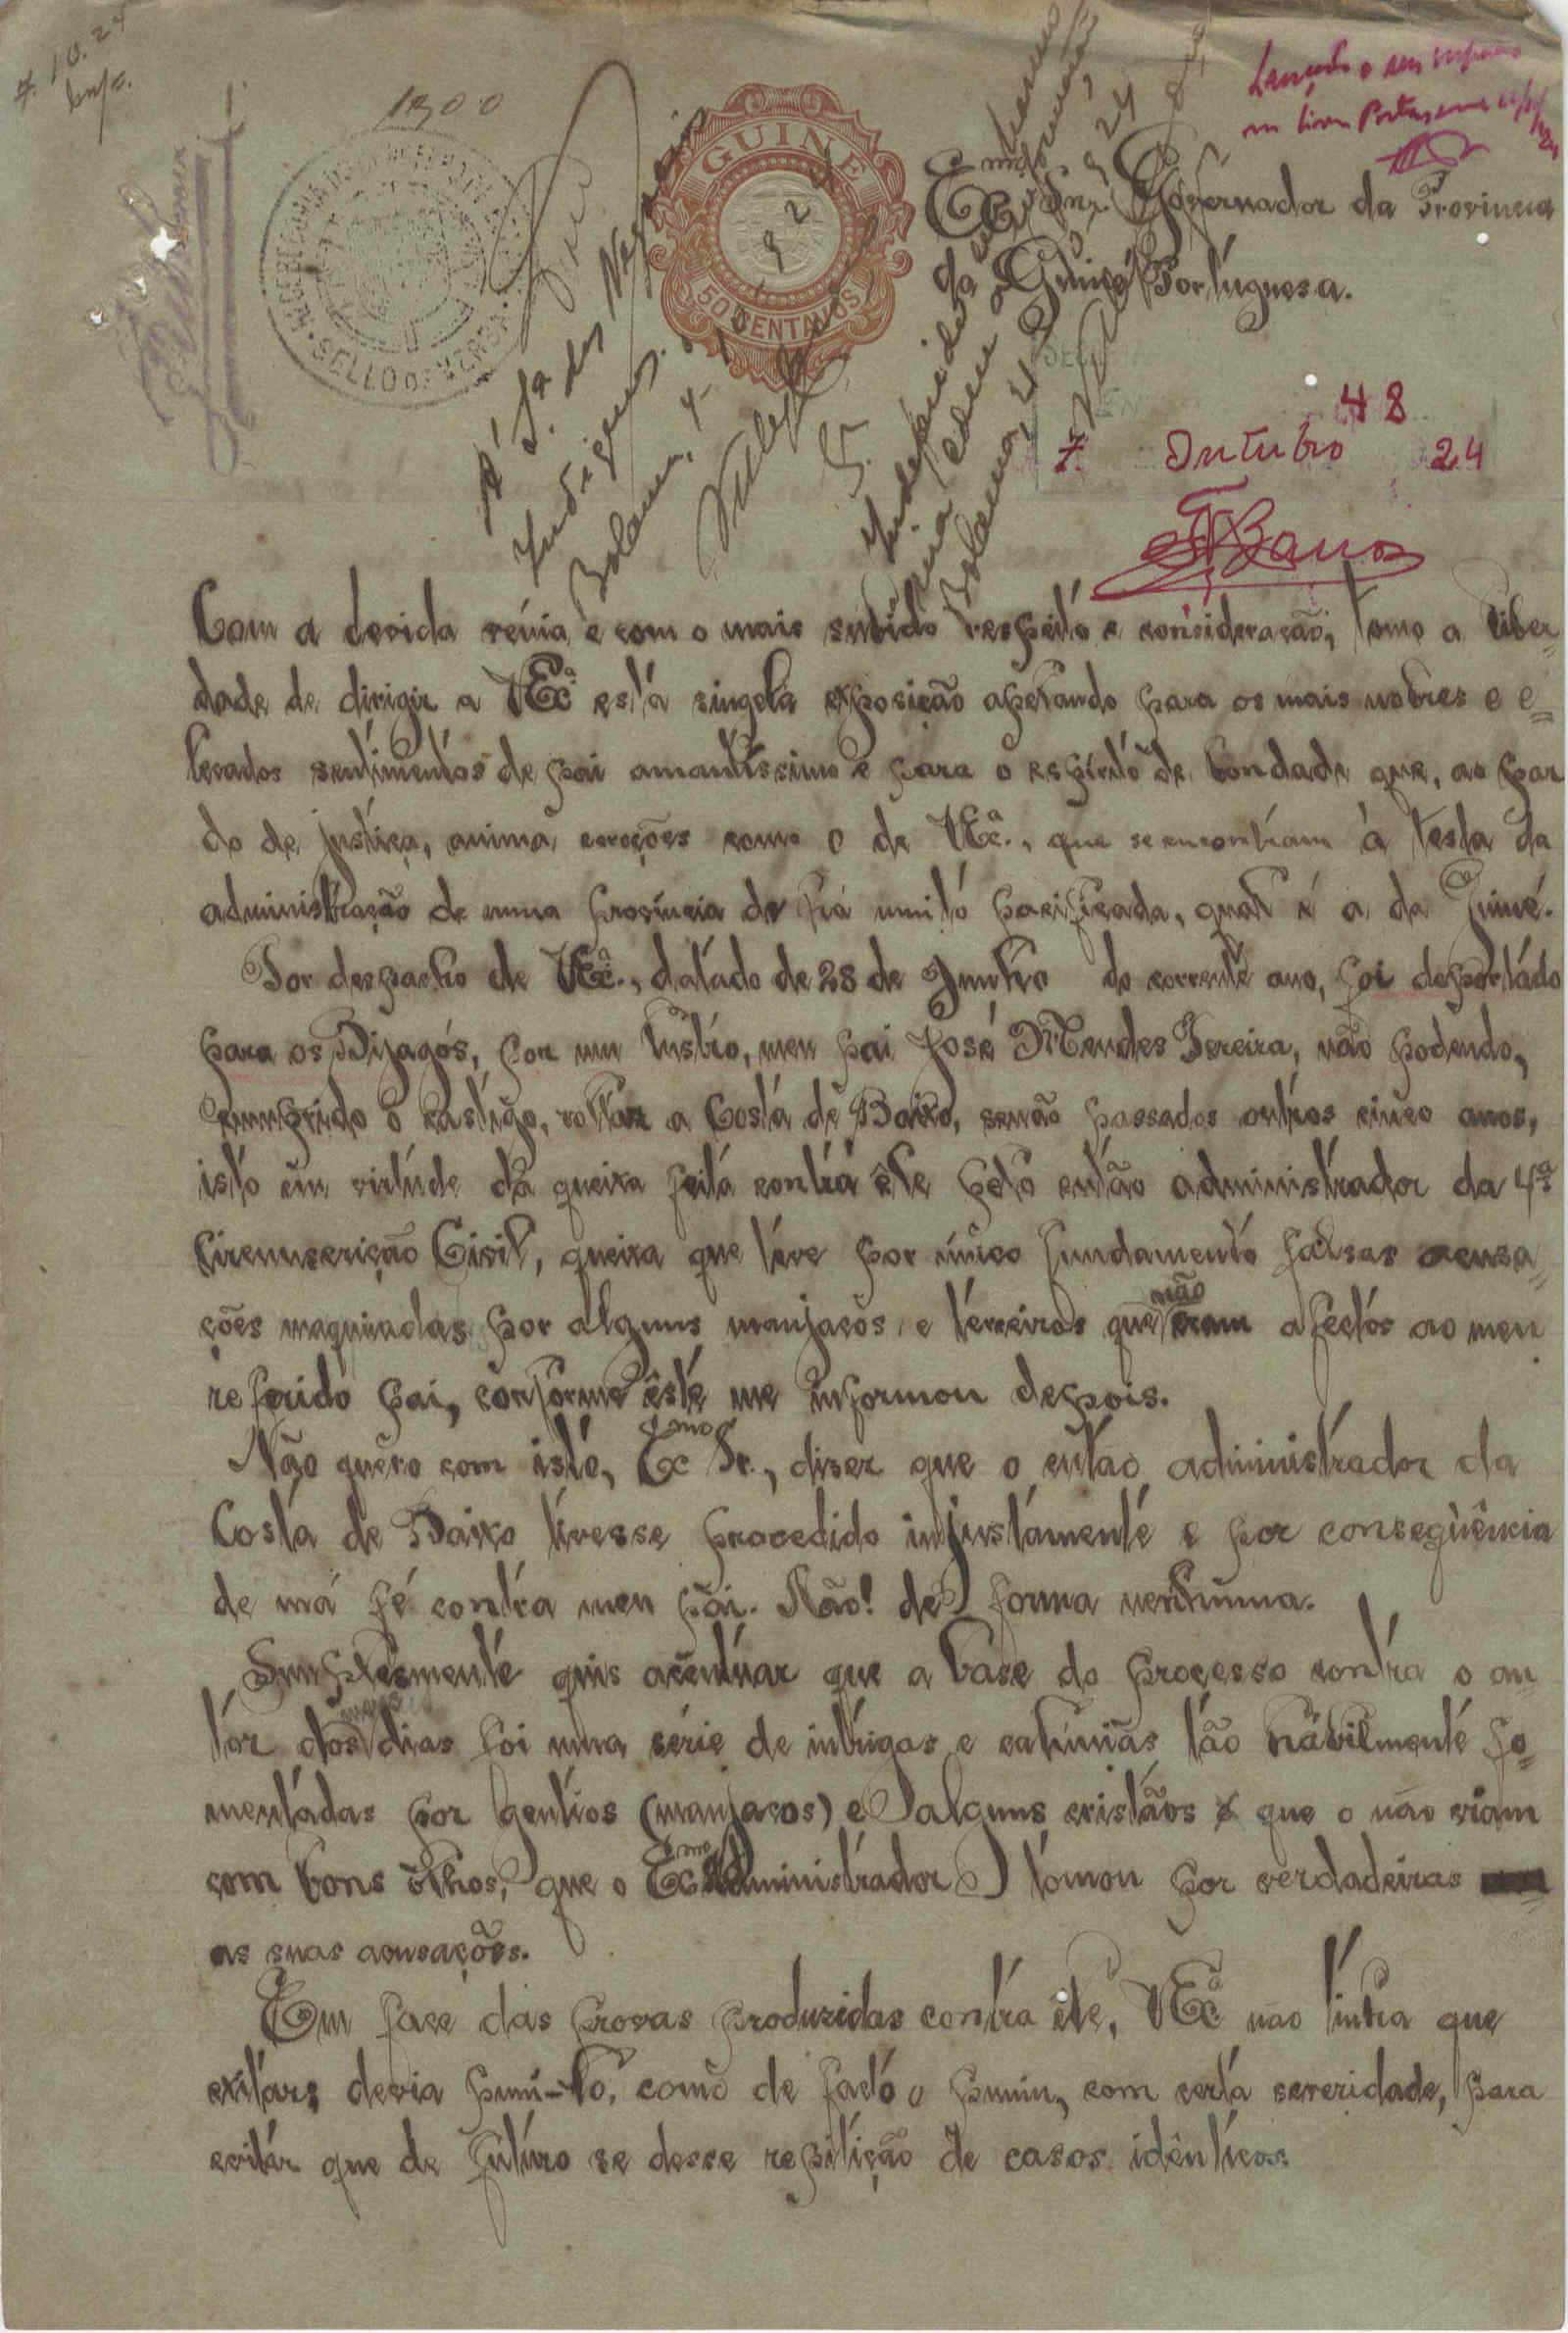 7.10.24
1$00
GUINÉ
50 CENTAVOS
Exmo Snr. Governador da Provincia
da Guiné Portuguesa.
Á Sa. dos Negocios
Indigenas.
Bolama, 4-10-924
Indeferido
Bolama,
48
7 Outubro 24
Com a devida vénia e com o mais subido respeito e consideração, tomo a liber=
dade de dirigir a VExª esta singela exposição apelando para os mais nobres e e=
levados sentimentos de pai amantíssimo e para o espírito de bondade que, ao par
do de justiça, anima corações como o de VExª., que se encontram à testa da
administração de numa província de há muito pacificada, qual é a da Guiné.
Por despacho de VExª., datado de 28 de Junho do corrente ano, foi deportado
para os Bijagós, por um lustro, meu pai José Mendes Pereira, não podendo,
cumprido o castigo, voltar a Costa de Baixo, senão passados outros cinco anos,
isto em virtude da queixa feita contra êle pelo então administrador da 4ª
Circunscrição Civil, queixa que teve por único fundamento falsas acusa=
ções maquinadas por alguns manjacos e terceiros que não eram afectos ao meu
referido pai, conforme êste me informou depois.
Não quero com isto, Exmo Sr., diser que o então administrador da
Costa de Baixo tivesse procedido injustamente e por conseqüência
de má fé contra meu pai. Não! de forma nenhuma.
Simplesmente quis acentuar que a base do processo contra o au=
tor dos meus dias foi uma série de intrigas e calúnias tão hábilmente fo=
mentadas por gentios (manjacos) e alguns cristãos que o não viam
com bons olhos, que o Exmo Administrador tomou por verdadeiras
as suas acusações.
Em face das provas produzidas contra êle, VExª não tinha que
exitar; devia puni-lo, como de facto o puniu, com certa severidade, para
evitar que de futuro se desse repitição de casos idênticos.